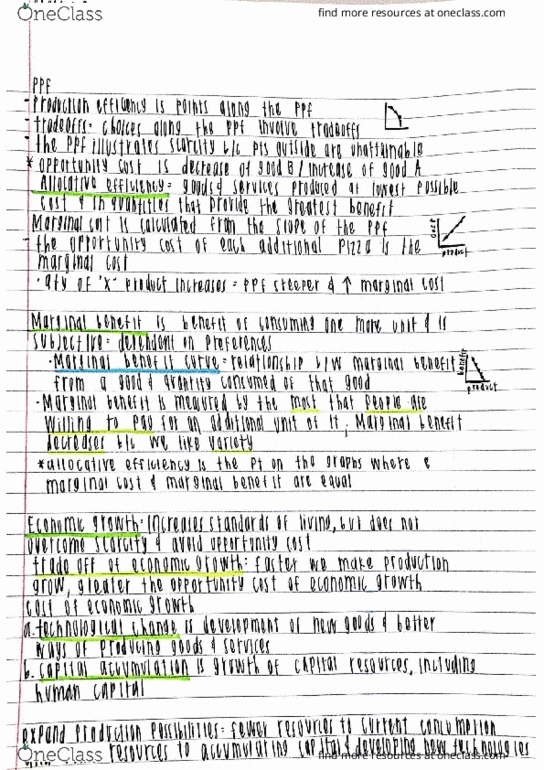 OneClass
find more resources at oneclass.com
PPF
- Production efficiency is points along the PPF
- tradeoffs = choices along the PPF involve tradeoffs
- the PPF illustrates scarcity b/c pts outside are unattainable
* opportunity cost is decrease of good B / increase of good A
Allocative efficiency = goods & services produced at lowest possible
cost & in quantities that provide the greatest benefit
Marginal cost is calculated from the slope of the PPF
- the opportunity cost of each additional pizza is the
marginal cost
· qty of "X" product increases = PPF steeper & ↑ marginal cost
cost
product
Marginal benefit is benefit of consuming one more unit & is
subjective = dependant on preferences
· Marginal benefit curve = relationship b/w marginal benefit
from a good & quantity consumed of that good
· Marginal benefit is measured by the most that people are
willing to pay for an additional unit of it; Marginal benefit
decreases b/c we like variety
benefit
product
* allocative efficiency is the pt on the graphs where
marginal cost & marginal benefit are equal
Economic growth = increases standards of living, but does not
overcome scarcity & avoid opportunity cost
trade off of economic growth: faster we make production
grow, greater the opportunity cost of economic growth
cost of economic growth
a. technological change is development of new goods & better
ways of producing goods & services
b. capital accumulation is growth of capital resources, including
human capital
expand production possibilities = fewer resources to current consumption
resources to accumulating capital & developing new technologies
OneClass
find more resources at oneclass.com